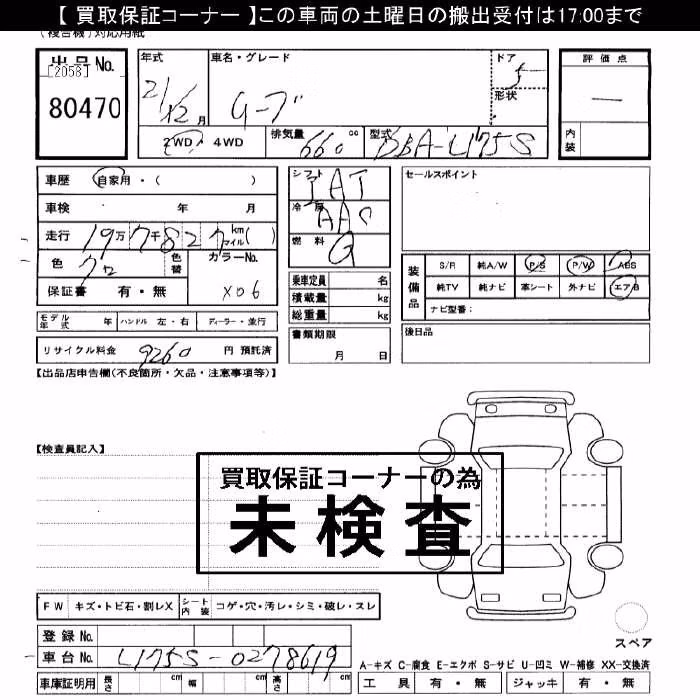 【 買取保証コーナー 】この車両の土曜日の搬出受付は17:00まで
(複合機)対応用紙
出品No.
[2058]
80470
年式
21/12 月
車名・グレード
ドア
5
形状
2WD ・ 4WD
排気量
660 cc
型式
DBA-L175S
評価点
―
内装
車歴 自家用・( )
車検 年 月
走行 19万7千827 kmマイル( )
色 クロ 色替 カラーNo.
X06
保証書 有・無
シフト
IAT
冷房
AAC
燃料
G
乗車定員 名
積載量 kg
総重量 kg
セールスポイント
装備品
S/R 純A/W P/S P/W ABS
純TV 純ナビ 革シート 外ナビ エアB
ナビ型番:
モデル年式 年 ハンドル 左・右 ディーラー・並行
書類期限
月 日
後日品
リサイクル料金 9260 円 預託済
【出品店申告欄(不良箇所・欠品・注意事項等)】
【検査員記入】
買取保証コーナーの為
未検査
FW キズ・トビ石・割レX シート内装 コゲ・穴・汚レ・シミ・破レ・スレ
登録No.
車台No. L175S-0278619
車庫証明用 長さ cm 幅 cm 高さ cm
スペア
A-キズ C-腐食 E-エクボ S-サビ U-凹ミ W-補修 XX-交換済
工具 有・無 ジャッキ 有・無